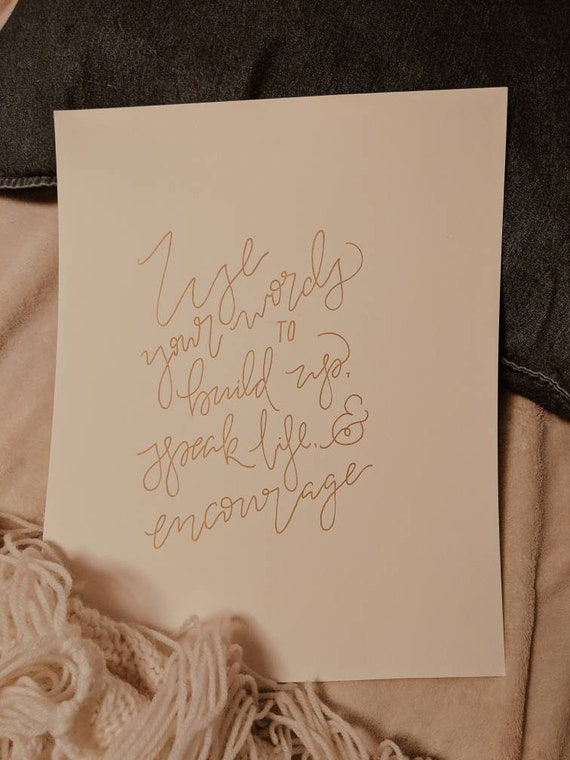 Use
your words
TO
build up,
speak life, &
encourage